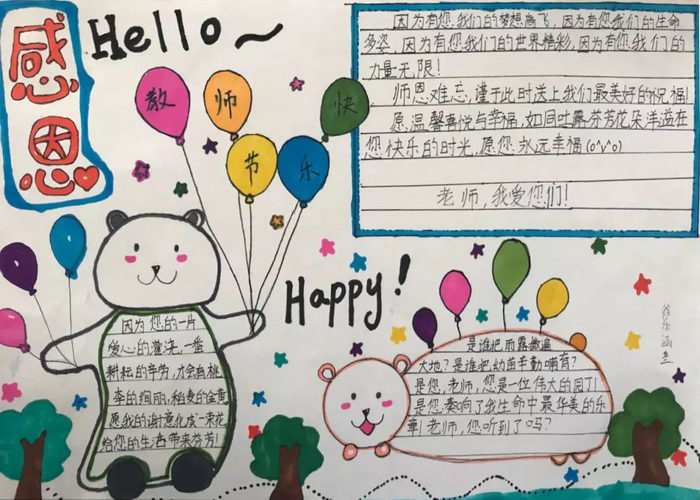 感
恩
Hello～
教师节快乐
因为有您,我们的梦想高飞,因为有您我们的生命
多姿,因为有您我们的世界精彩,因为有您,我们的
力量无限!
师恩难忘,谨于此时送上我们最美好的祝福!
愿温馨喜悦与幸福,如同吐露芬芳花朵洋溢在
您快乐的时光,愿您永远幸福(o^v^o)
老师,我爱您们!
Happy!
因为您的一片
爱心的灌浇,一番
耕耘的辛劳,才会有桃
李的绚丽,稻麦的金黄
愿我的谢意化成一束花
给您的生活带来芬芳!
是谁把雨露撒遍
大地?是谁把幼苗辛勤哺育?
是您,老师,您是一位伟大的园丁!
是您奏响了我生命中最华美的乐
章!老师,您听到了吗?